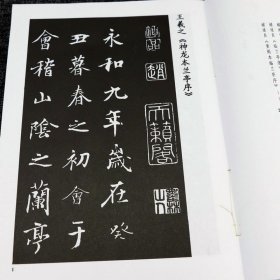 王羲之《神龙本兰亭序》
天籁阁
永和九年歲在癸
丑暮春之初會于
會稽山陰之蘭亭